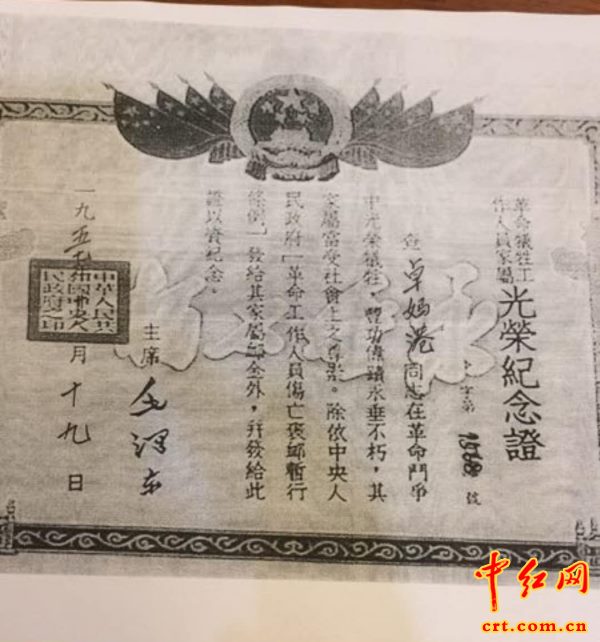 革命犧牲工
作人員家屬
光榮紀念證
字第 號
查卓同志在革命鬥爭
中光榮犧牲，豐功偉蹟永垂不朽，其
家屬當受社會上之尊崇。除依中央人
民政府「革命工作人員傷亡褒卹暫行
條例」發給其家屬卹金外，并發給此
證以資紀念。
主席 毛澤東
一九五 月十九日
中華人民共
和國中央人
民政府之印
中红网
crt.com.cn